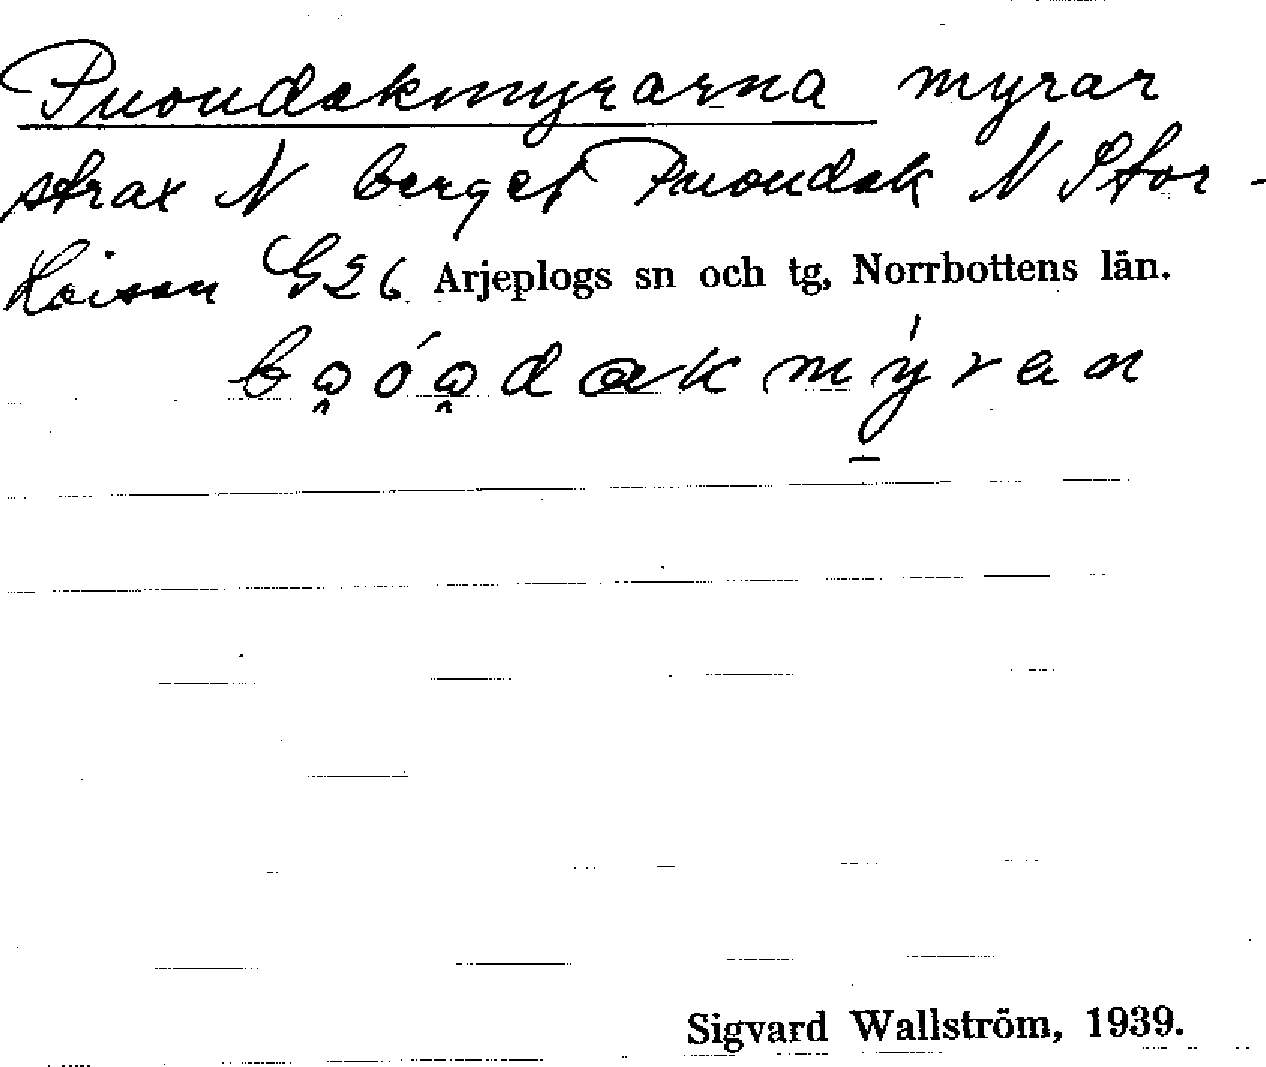 Puoudakmyrarna myrar
strax N berget Puoudak N Stor-
Laisan G26 Arjeplogs sn och tg, Norrbottens län.
Sigvard Wallström, 1939.